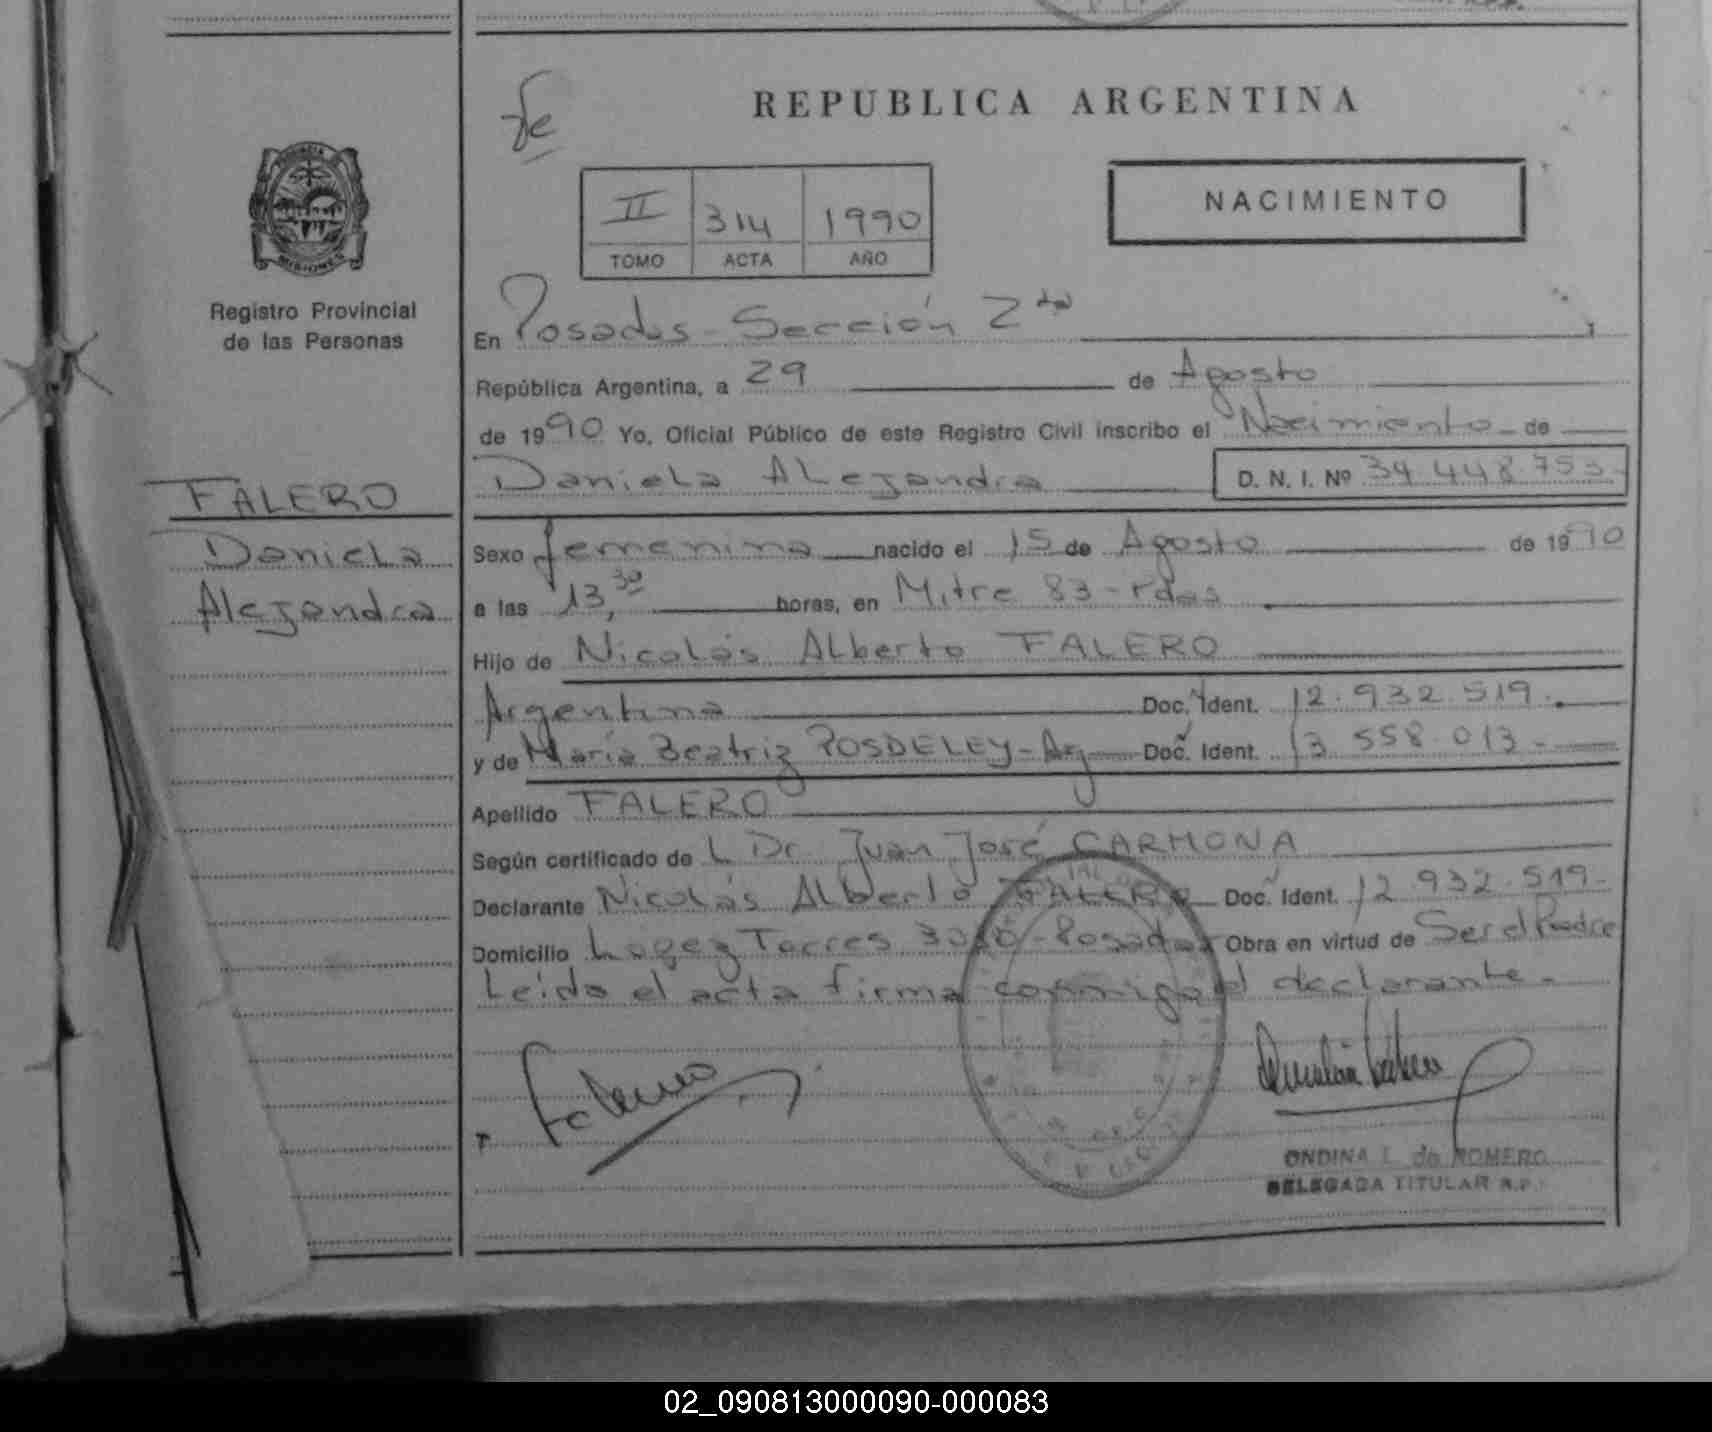 REPUBLICA ARGENTINA
NACIMIENTO
II 314 1990
TOMO ACTA AÑO
PROVINCIA DE
MISIONES
Registro Provincial
de las Personas
FALERO
Daniela
Alejandra
En Posadas - Sección 2da
República Argentina, a 29 de Agosto
de 1990 Yo, Oficial Público de este Registro Civil inscribo el Nacimiento de
Daniela Alejandra D. N. I. Nº 34.448.753-
Sexo femenina nacido el 15 de Agosto de 1990
a las 13,30 horas, en Mitre 83 - Pdas
Hijo de Nicolás Alberto FALERO
Argentina Doc. Ident. 12.932.519.
y de María Beatriz POSDELEY - Arg Doc. Ident. 13.558.013-
Apellido FALERO
Según certificado de L Dr. Juan José CARMONA
Declarante Nicolás Alberto FALERO Doc. Ident. 12.932.519-
Domicilio López Torres - Posadas Obra en virtud de Ser el Padre
Leída el acta firma conmigo el declarante.-
Falero
ONDINA L. de ROMERO
DELEGADA TITULAR R.P.
02_090813000090-000083